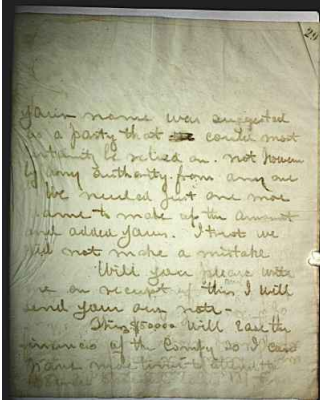 29
Your name was suggested
as a party that could most
certainly be relied on. not however
by any authority from any one
We needed just one more
name to make up the amount
and added yours. I trust we
did not make a mistake
Will you please write
me on receipt of this I will
send you our note -
This $50000 will Ease the
finances of the Company so I can
have more time to attend to